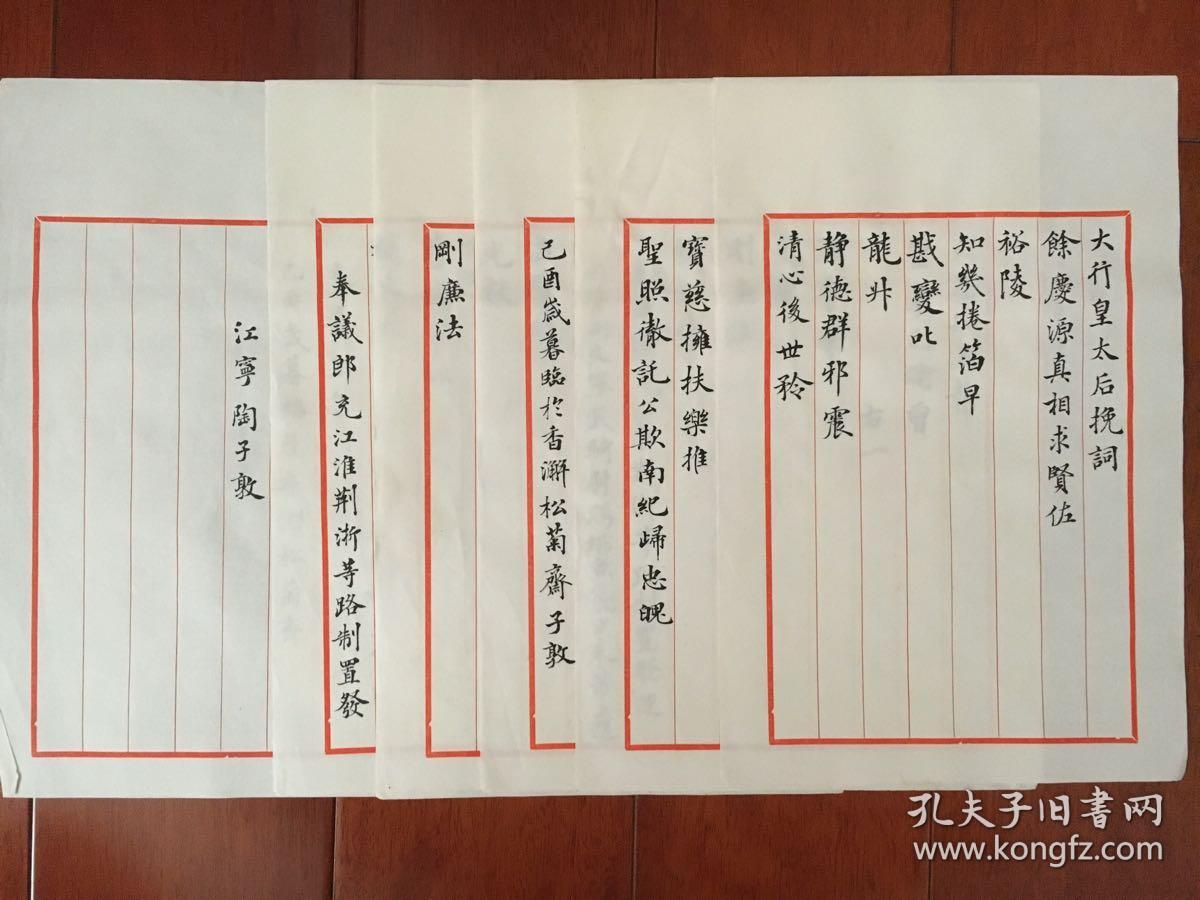 大行皇太后挽詞
餘慶源真相求賢佐
裕陵
知幾捲箔早
戡變叱
龍升
靜德群邪震
清心後世矜
寶慈擁扶樂推
聖照徹託公欺南紀歸忠魄
己酉歲暮臨於香澥松菊齋子敦
剛廉法
奉議郎充江淮荆浙等路制置發
江寧陶子敦
孔夫子旧书网
www.kongfz.com